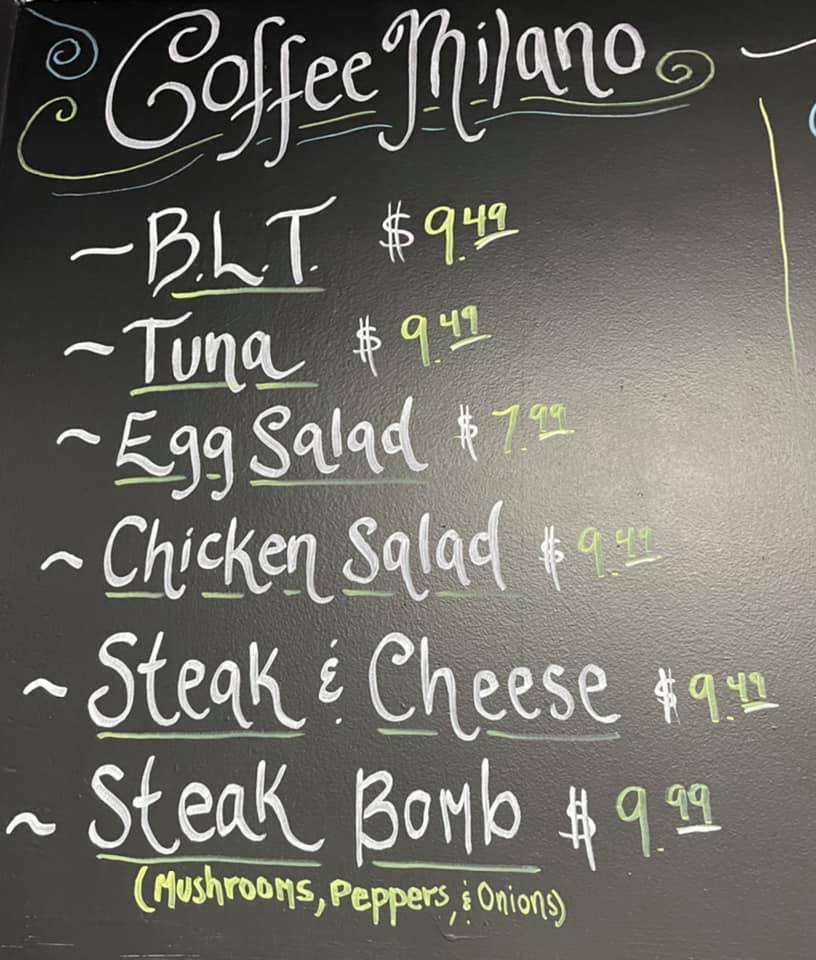 Coffee Milano
~ B.L.T. $9.49
~ Tuna $9.49
~ Egg Salad $7.99
~ Chicken Salad $9.49
~ Steak & Cheese $9.49
~ Steak Bomb $9.99
(Mushrooms, Peppers, & Onions)